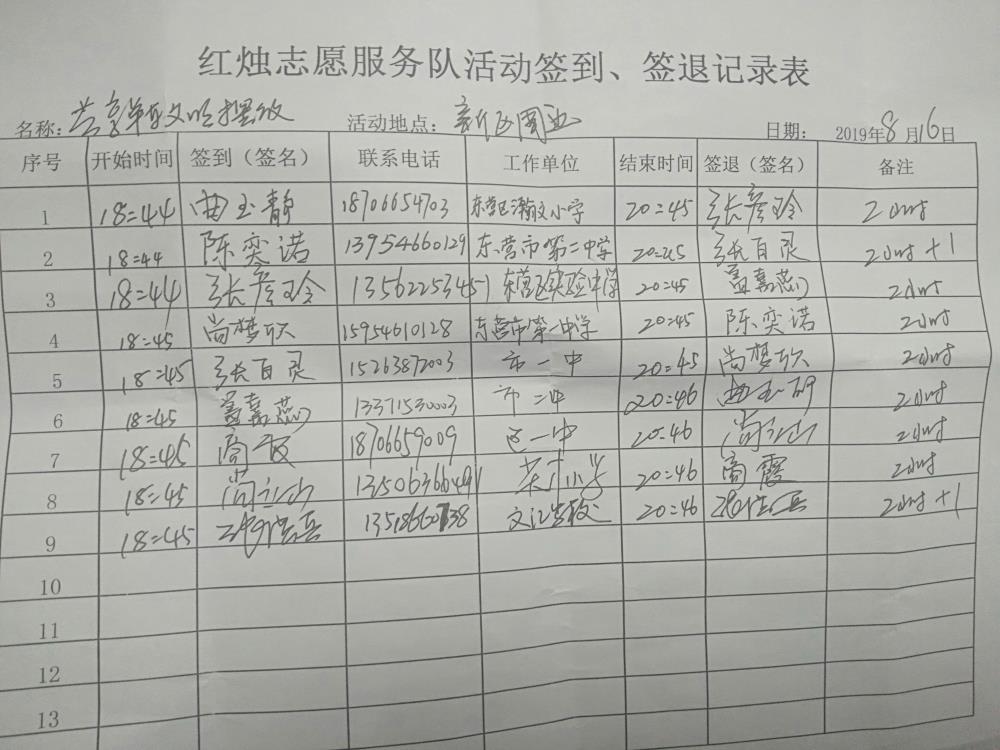 红烛志愿服务队活动签到、签退记录表
名称：共享单车文明摆放 活动地点：新区周边 日期：2019年8月16日
序号 开始时间 签到（签名） 联系电话 工作单位 结束时间 签退（签名） 备注
1 18:44 曲玉静 18706654703 东营区瀚文小学 20:45 张彦玲 2小时
2 18:44 陈奕诺 13954660129 东营市第二中学 20:45 张百灵 2小时+1
3 18:44 张彦玲 13562253451 东营区实验中学 20:45 盖嘉蕊 2小时
4 18:45 尚梦欣 15954610128 东营市第一中学 20:45 陈奕诺 2小时
5 18:45 张百灵 15263872003 市一中 20:45 尚梦欣 2小时
6 18:45 盖嘉蕊 13371530003 市二中 20:46 2小时
7 18:45 高霞 18706659009 区一中 20:46 尚立山 2小时
8 18:45 尚立山 13506366491 20:46 高霞 2小时
9 18:45 13518660738 文汇学校 20:46 2小时+1
10
11
12
13